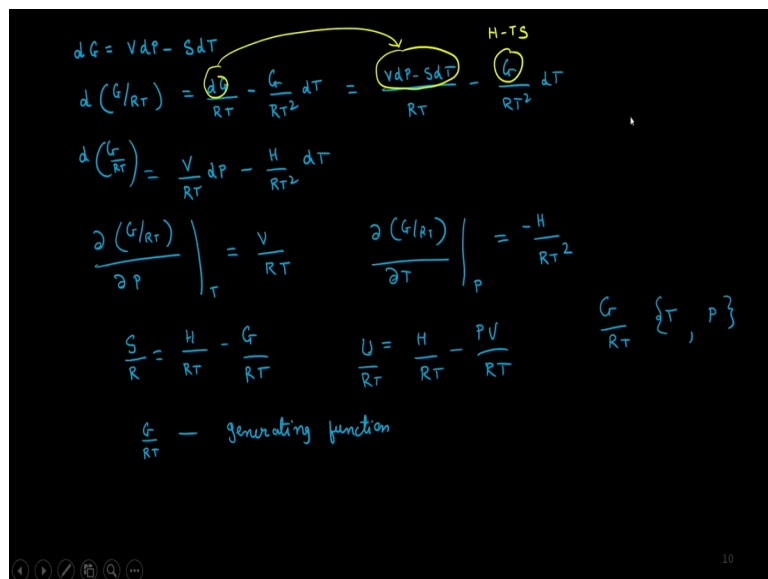 H-TS
dG = VdP - SdT
d (G/RT) = dG/RT - G/RT² dT = VdP-SdT/RT - G/RT² dT
d (G/RT) = V/RT dP - H/RT² dT
∂(G/RT)/∂P |T = V/RT    ∂(G/RT)/∂T |P = -H/RT²
G/RT {T, P}
S/R = H/RT - G/RT    U/RT = H/RT - PV/RT
G/RT — generating function
10